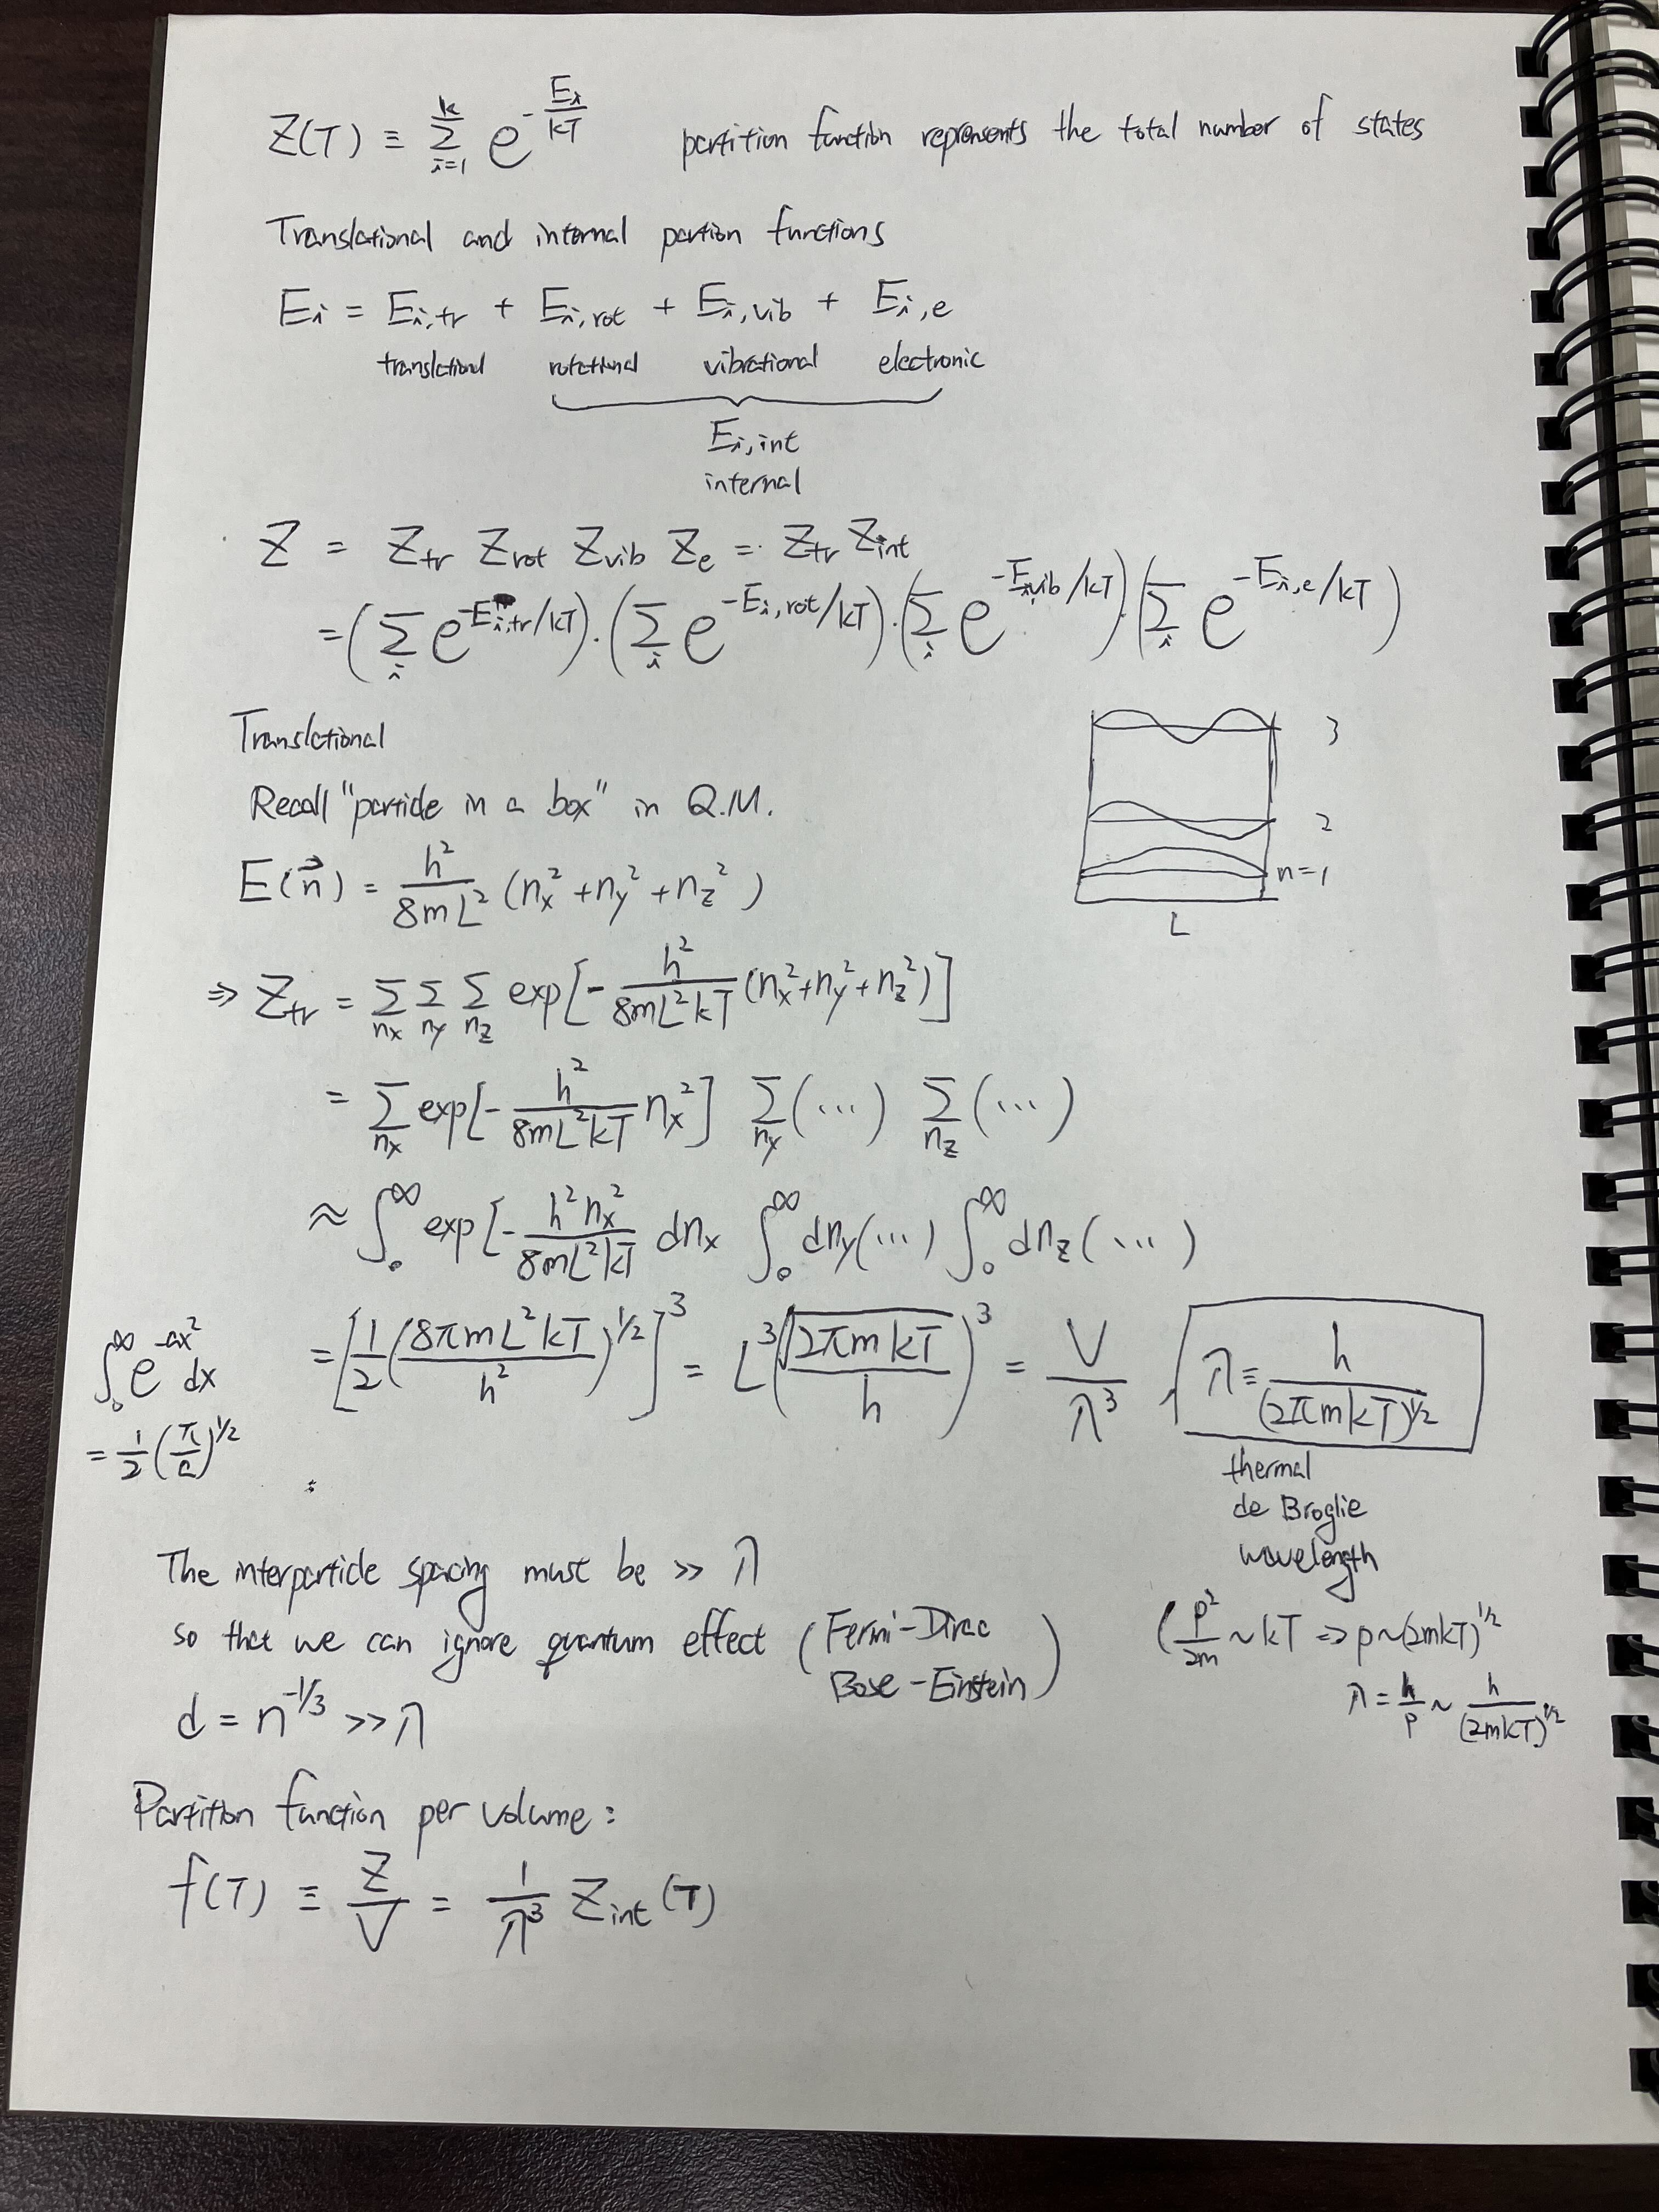 Z(T) ≡ Σ_{i=1}^{k} e^{-E_i/kT} partition function represents the total number of states
Translational and internal partion functions
E_i = E_{i,tr} + E_{i,rot} + E_{i,vib} + E_{i,e}
translational rotational vibrational electronic
E_{i,int}
internal
Z = Z_{tr} Z_{rot} Z_{vib} Z_e = Z_{tr} Z_{int}
= (Σ_i e^{-E_{i,tr}/kT}) · (Σ_i e^{-E_{i,rot}/kT}) · (Σ_i e^{-E_{i,vib}/kT}) · (Σ_i e^{-E_{i,e}/kT})
Translational
Recall "particle in a box" in Q.M.
E(n⃗) = h²/8mL² (n_x² + n_y² + n_z²)
3
2
n=1
L
⇒ Z_{tr} = Σ_{n_x} Σ_{n_y} Σ_{n_z} exp[- h²/8mL²kT (n_x² + n_y² + n_z²)]
= Σ_{n_x} exp[- h²/8mL²kT n_x²] Σ_{n_y} (···) Σ_{n_z} (···)
≈ ∫_0^∞ exp[- h²n_x²/8mL²kT dn_x ∫_0^∞ dn_y (···) ∫_0^∞ dn_z (···)
= [1/2 (8πmL²kT/h²)^{1/2}]^3 = L³ (√(2πmkT)/h)^3 = V/λ³ , λ ≡ h/(2πmkT)^{1/2}
∫_0^∞ e^{-ax²} dx
= 1/2 (π/a)^{1/2}
thermal
de Broglie
wavelength
The interparticle spacing must be >> λ
so that we can ignore quantum effect (Fermi-Dirac
Bose-Einstein)
d = n^{-1/3} >> λ
(p²/2m ~ kT ⇒ p ~ (2mkT)^{1/2}
λ = h/p ~ h/(2mkT)^{1/2}
Partition function per volume:
f(T) ≡ Z/V = 1/λ³ Z_{int}(T)